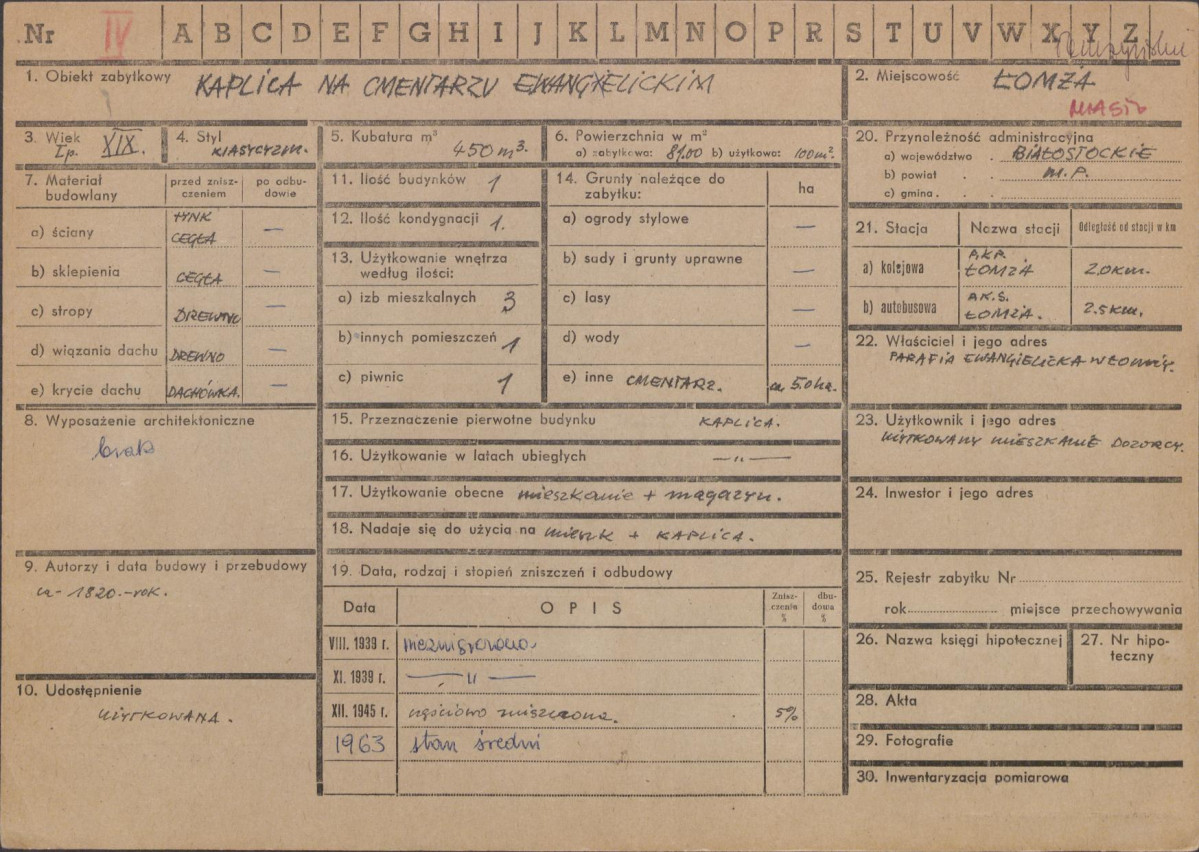 Nr IV A B C D E F G H I J K L M N O P R S T U V W X Y Z
1. Obiekt zabytkowy KAPLICA NA CMENTARZU EWANGIELICKIM
2. Miejscowość ŁOMŻA
MIASTO
3. Wiek I p. XIX.
4. Styl KLASYCYZM.
5. Kubatura m³ 450 m³.
6. Powierzchnia w m²
a) zabytkowa: 81,00 b) użytkowa: 100m².
7. Materiał budowlany
przed zniszczeniem
po odbudowie
a) ściany TYNK CEGŁA —
b) sklepienia CEGŁA —
c) stropy DREWNO —
d) wiązania dachu DREWNO —
e) krycie dachu DACHÓWKA. —
8. Wyposażenie architektoniczne
brak
9. Autorzy i data budowy i przebudowy
ca - 1820.-rok.
10. Udostępnienie
UŻYTKOWANA.
11. Ilość budynków 1
12. Ilość kondygnacji 1.
13. Użytkowanie wnętrza
według ilości:
a) izb mieszkalnych 3
b) innych pomieszczeń 1
c) piwnic 1
14. Grunty należące do
zabytku:
ha
a) ogrody stylowe —
b) sady i grunty uprawne —
c) lasy —
d) wody —
e) inne CMENTARZ. ca 5.0 ha.
15. Przeznaczenie pierwotne budynku KAPLICA.
16. Użytkowanie w latach ubiegłych —"—
17. Użytkowanie obecne mieszkanie + magazyn.
18. Nadaje się do użycia na mieszk + KAPLICA.
19. Data, rodzaj i stopień zniszczeń i odbudowy
Data OPIS Znisz-czenie % dbu-dowa %
VIII. 1939 r.
XI. 1939 r. —"—
XII. 1945 r. częściowo zniszczona. 5%
1963 stan średni
20. Przynależność administracyjna
a) województwo . BIAŁOSTOCKIE
b) powiat . . M.P.
c) gmina . .
21. Stacja Nazwa stacji Odległość od stacji w km
a) kolejowa P.K.P. ŁOMŻA 2.0 KM.
b) autobusowa ŁOMŻA. 2.5 KM.
22. Właściciel i jego adres
PARAFIA EWANGIELICKA W ŁOMŻY.
23. Użytkownik i jego adres
UŻYTKOWANY MIESZKANIE DOZORCY.
24. Inwestor i jego adres
25. Rejestr zabytku Nr
rok miejsce przechowywania
26. Nazwa księgi hipotecznej
27. Nr hipo-
teczny
28. Akta
29. Fotografie
30. Inwentaryzacja pomiarowa